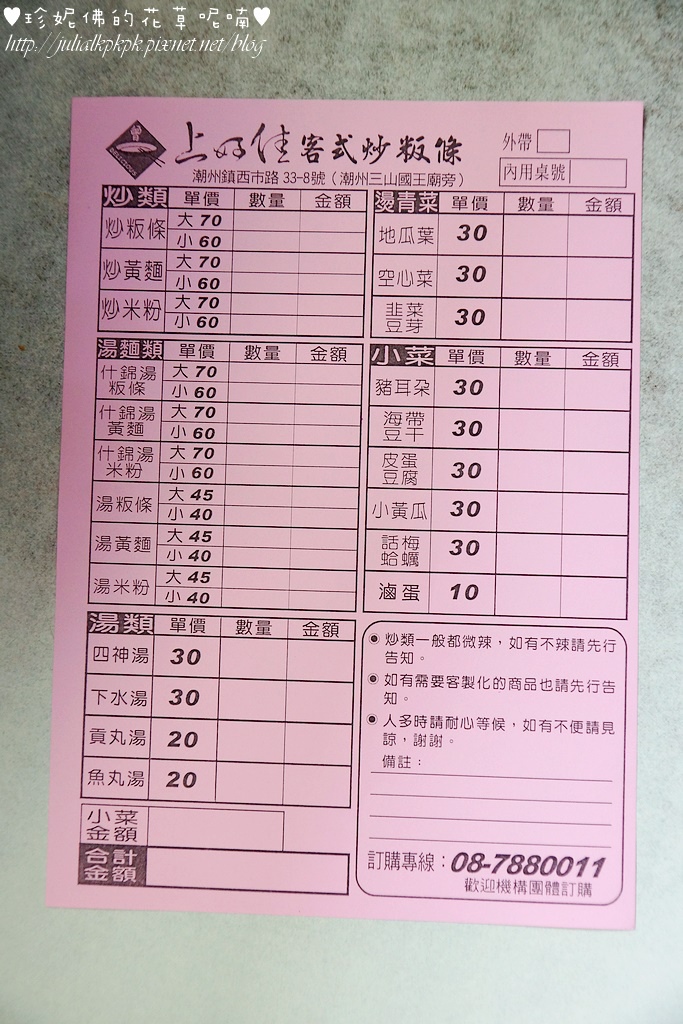 ♥珍妮佛的花草呢喃♥
http://julialkpkpk.pixnet.net/blog
上好佳客式炒粄條
外帶
內用桌號
潮州鎮西市路33-8號（潮州三山國王廟旁）
炒類 單價 數量 金額
炒粄條 大 70
小 60
炒黃麵 大 70
小 60
炒米粉 大 70
小 60
湯麵類 單價 數量 金額
什錦湯粄條 大 70
小 60
什錦湯黃麵 大 70
小 60
什錦湯米粉 大 70
小 60
湯粄條 大 45
小 40
湯黃麵 大 45
小 40
湯米粉 大 45
小 40
湯類 單價 數量 金額
四神湯 30
下水湯 30
貢丸湯 20
魚丸湯 20
小菜金額
合計金額
燙青菜 單價 數量 金額
地瓜葉 30
空心菜 30
韭菜豆芽 30
小菜 單價 數量 金額
豬耳朵 30
海帶豆干 30
皮蛋豆腐 30
小黃瓜 30
話梅蛤蠣 30
滷蛋 10
炒類一般都微辣，如有不辣請先行
告知。
如有需要客製化的商品也請先行告
知。
人多時請耐心等候，如有不便請見
諒，謝謝。
備註：
訂購專線：08-7880011
歡迎機構團體訂購